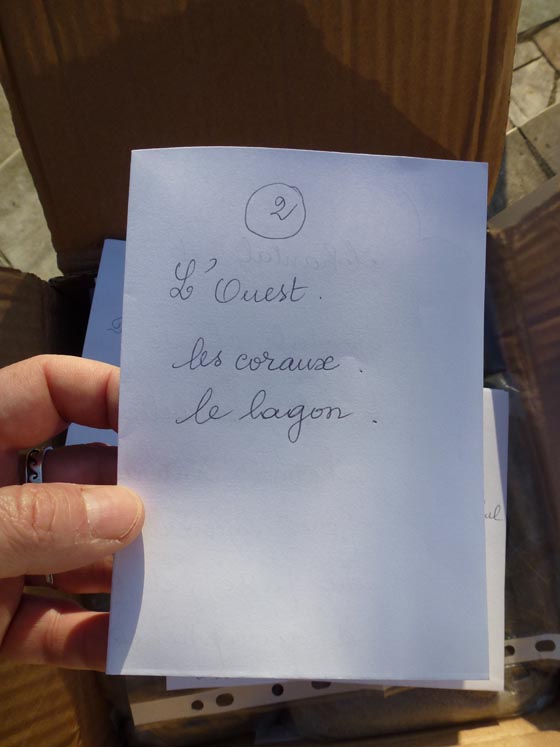 2
L'Ouest.
les coraux.
le lagon.